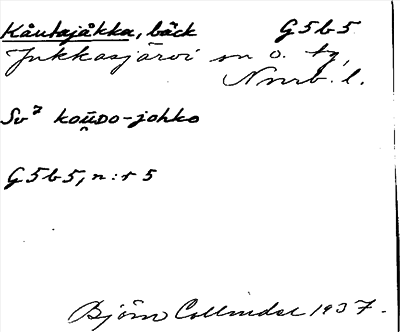 Kåutajåkka, bäck G5b5
Jukkasjärvi sn o. tg,
Nrrb. l.
Sv⁷ ko̯ūDo-johko
G5b5, n:r 5
Björn Collinder 1937.